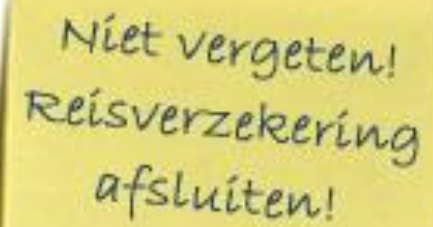 Niet vergeten!
Reisverzekering
afsluiten!